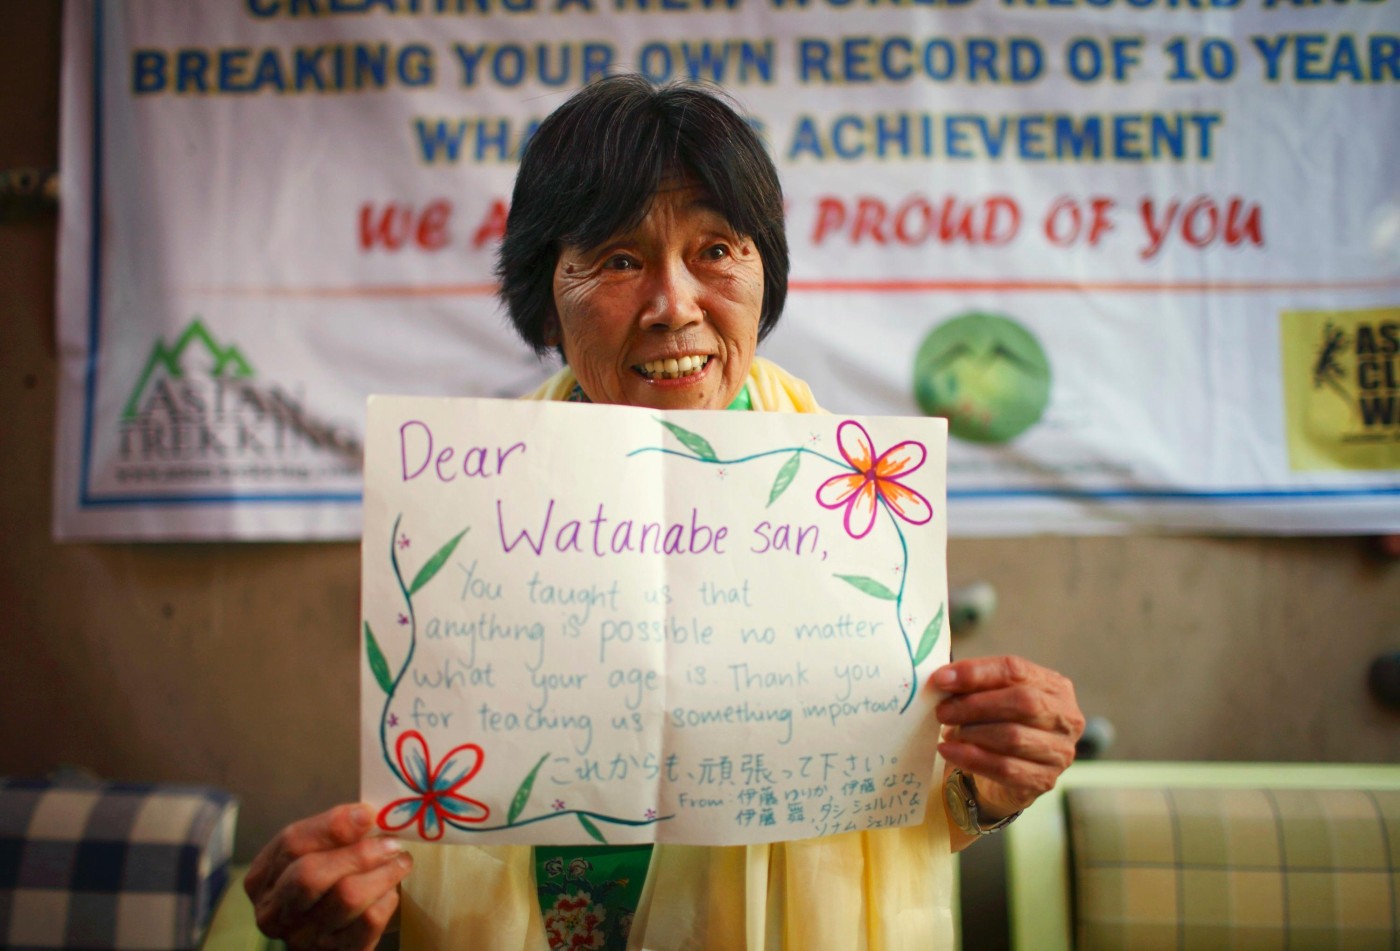 CREATING A NEW WORLD RECORD AND
BREAKING YOUR OWN RECORD OF 10 YEAR
ACHIEVEMENT
WE PROUD OF YOU
ASIAN
TREKKING
Dear
Watanabe san,
You taught us that
anything is possible no matter
what your age is. Thank you
for teaching us something important
これからも、頑張って下さい。
From: 伊藤 ゆりか, 伊藤 なな,
伊藤 舞, ダシ シェルパ &
ソナム シェルパ